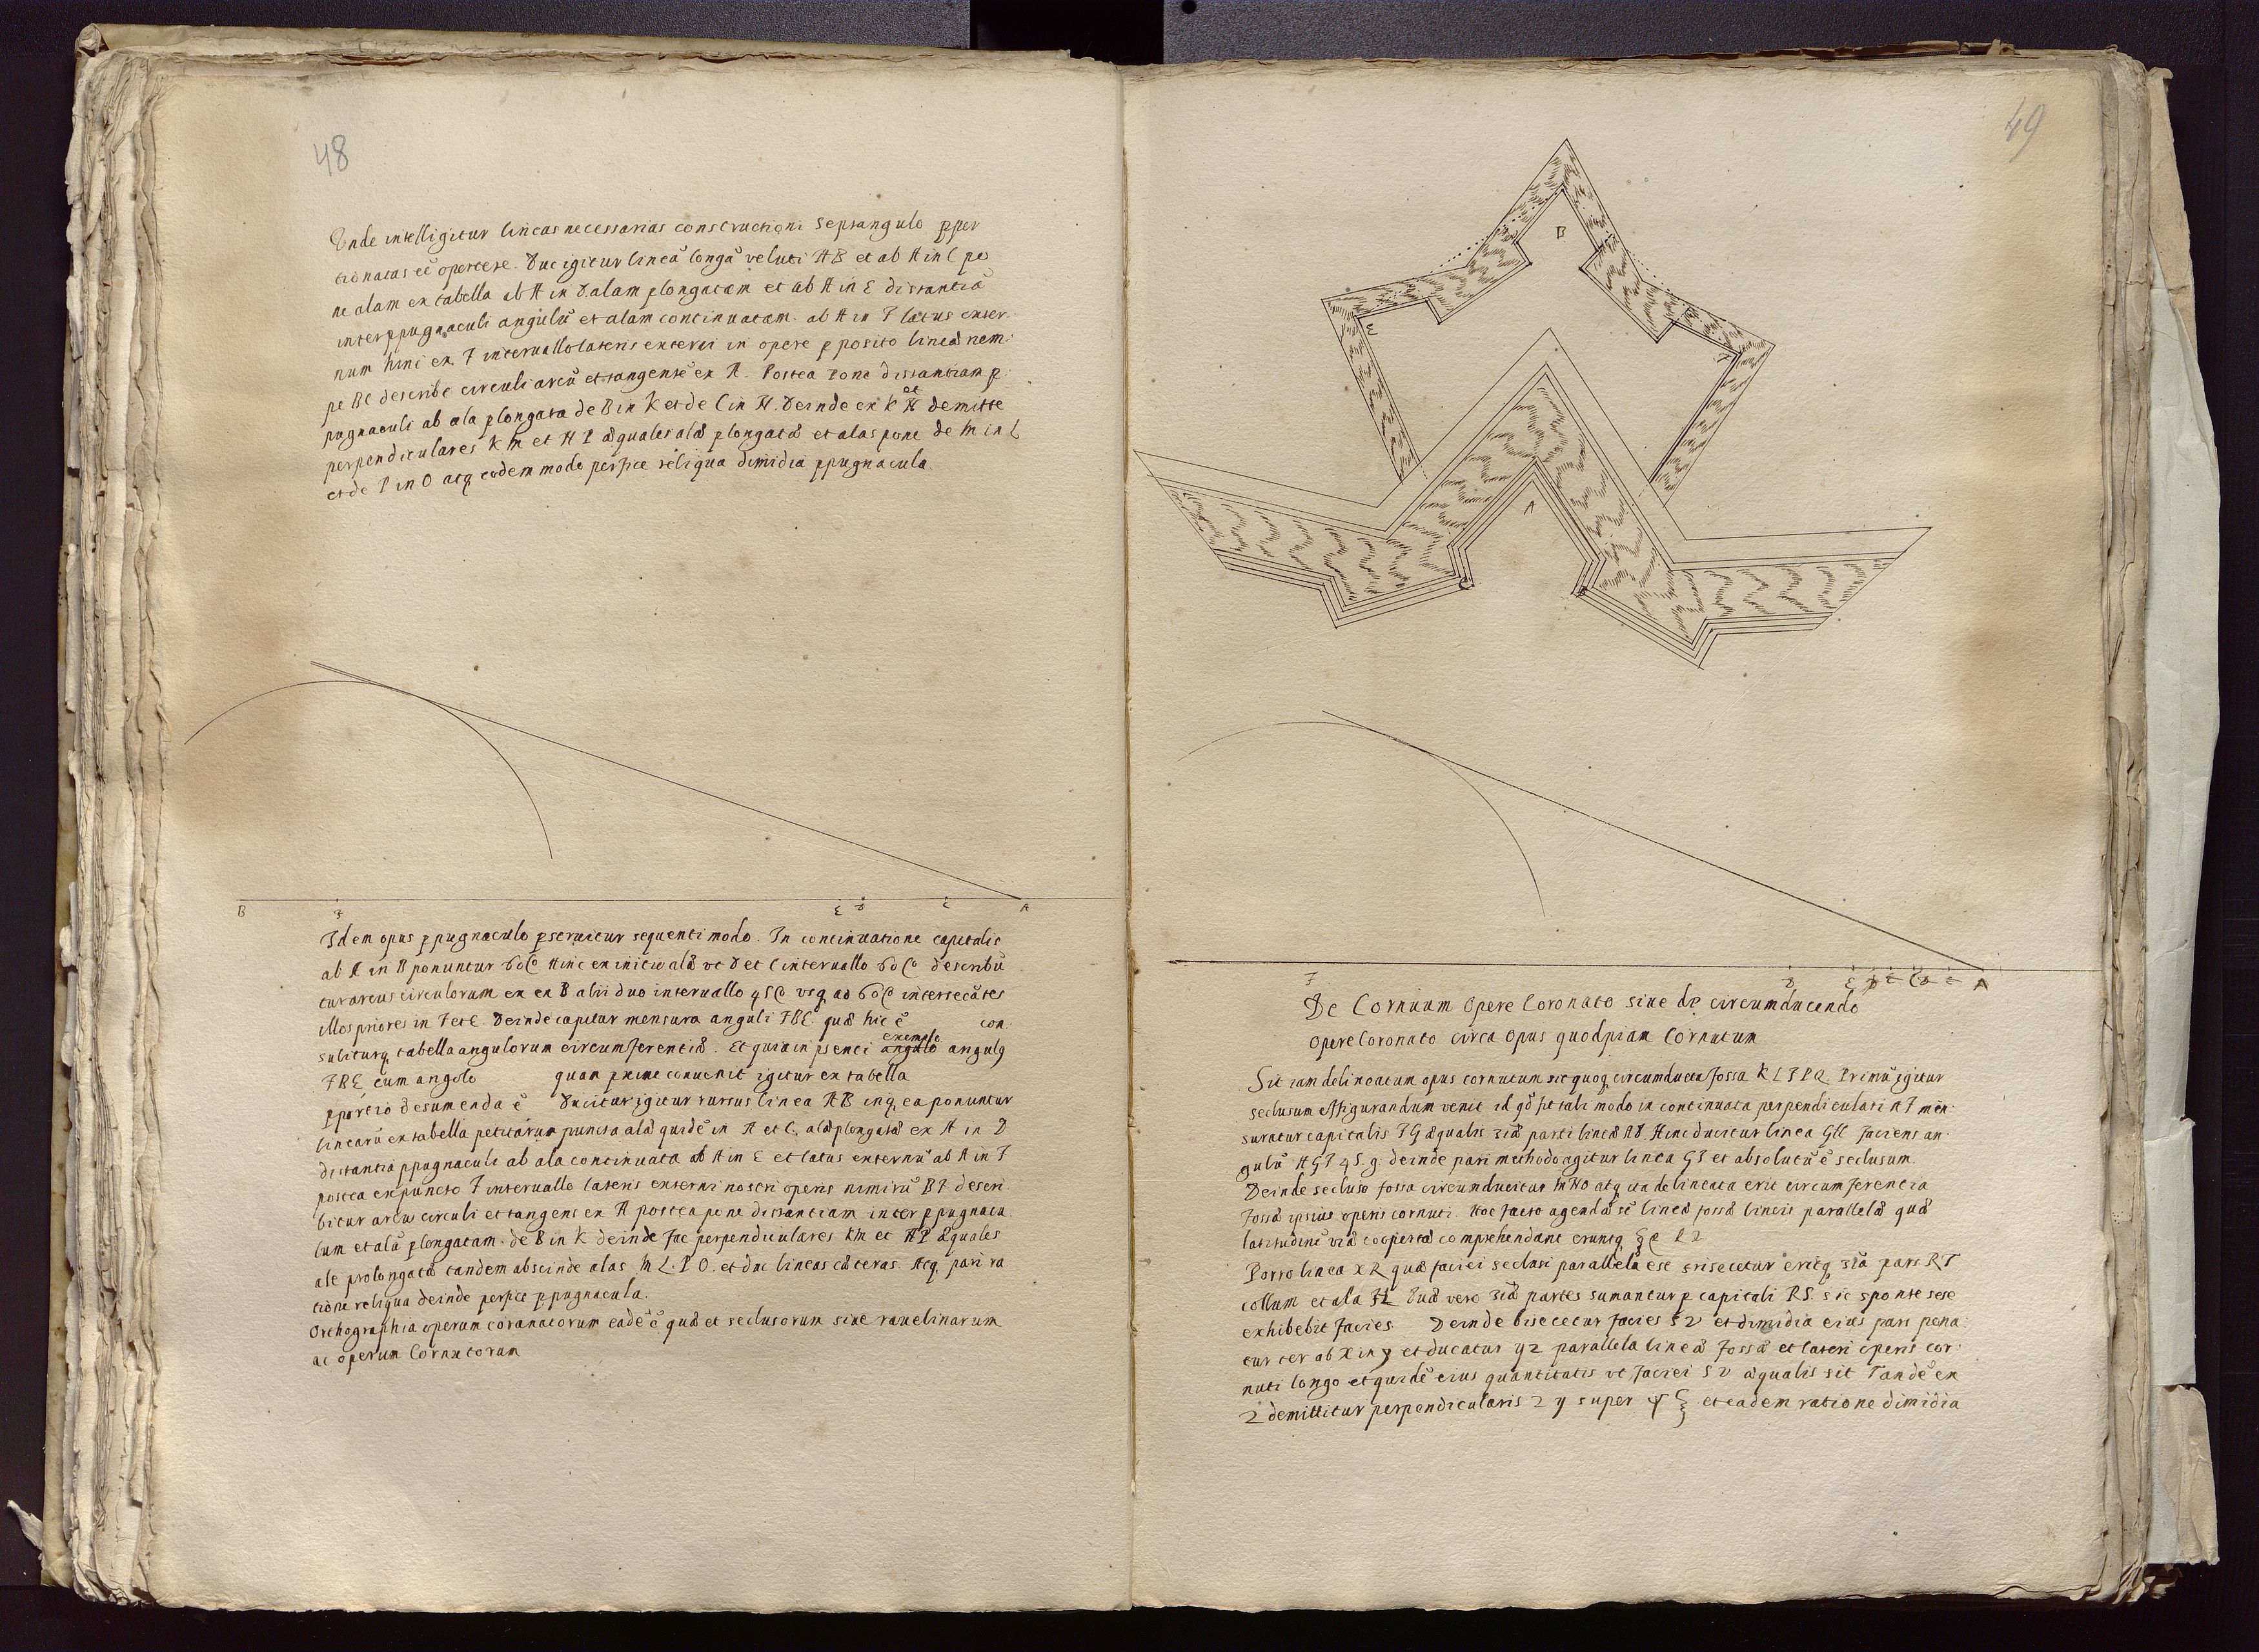 48
Unde intelligitur lineas necessarias constructioni septangulo pper
tionatas eē oportere. Duc igitur lineā longā veluti AB et ab A in C po
ne alam ex tabella ab A in D. alam plongatam et ab A in E distantiā
inter ppugnaculi angulū et alam continuatam. ab A in F latus exter
num hinc ex F interuallo lateris externi in opere pposito lineā nem
pe BC describe circuli arcū et tangentē ex A. Postea pone distantiam p
pugnaculi ab ala plongata de B in K et de C in H. Deinde ex K et H demitte
perpendiculares KM et HP æquales alæ plongatæ et alas pone de M in L
et de P in O atq eodem modo perfice reliqua dimidia ppugnacula.
B F E D C A
Idem opus ppugnaculo pscruitur sequenti modo. In continuatione capitalis
ab A in B ponuntur 60° Hinc ex initio alæ vt D et C interuallo 60° describū
tur arcus circulorum ex ex B alii duo interuallo 45° vsq ad 60° intersecātes
illos priores in F et E. Deinde capitur mensura anguli FBE quæ hic ē con
suliturq tabella angulorum circumferentiæ. Et quia in psenti exemplo angulo angulq
FBE cum angolo quam pxime conuenit igitur ex tabella
pportio desumenda ē Ducitur igitur rursus linea AB inq ea ponuntur
linearū ex tabella petitarum puncta alæ quidē in A et C, alæ plongatæ ex A in D
distantia ppugnaculi ab ala continuata ab A in E et latus externū ab A in F
postea ex puncto F interuallo lateris externi nostri operis nimirū BF descri
bitur arcus circuli et tangens ex A postea pone distantiam inter ppugnacu
lum et alā plongatam de B in K deinde fac perpendiculares KM et HP æquales
ale prolongatæ tandem abscinde alas ML. PO. et duc lineas cæteras. Atq pari ra
tione reliqua deinde perfice ppugnacula.
Orthographia operum coronatorum eadē ē quæ et seclusorum siue rauelinarum
ac operum Cornutorum
49
B
E
F
A
C
D
F D E C A
De Cornuum Opere Coronato siue de circumducendo
Opere Coronato circa Opus quodpiam Cornutum
Sit iam delineatum opus cornutum sit quoq circumducta fossa KLFPQ Primū igitur
seclusum effigurandum venit id qd fit tali modo in continuata perpendiculari AF men
suratur capitalis FG æqualis 3iæ parti lineæ AD. Hinc ducitur linea GH faciens an
gulū HGF 45. g. deinde pari methodo agitur linea GI et absolutū ē seclusum.
Deinde secluso fossa circumducitur MNO atq ita delineata erit circumferentia
fossæ ipsius operis cornuti. Hoc facto agendæ sē lineæ fossæ lineis parallelæ quæ
latitudinē viæ coopertæ comprehendant eruntq
Porro linea XR quæ faciei seclusi parallela est trisecetur eritq 3ia pars RT
collum et ala Duæ vero 3iæ partes sumantur p capitali RS sic sponte sese
exhibebit facies Deinde bisecetur facies SV et dimidia eius pars pona
tur ter ab X in y et ducatur yz parallela lineæ fossæ et lateri operis cor
nuti longo et quidē eius quantitatis vt faciei SV æqualis sit Tandē ex
z demittitur perpendicularis z y super ψ ξ et eadem ratione dimidia